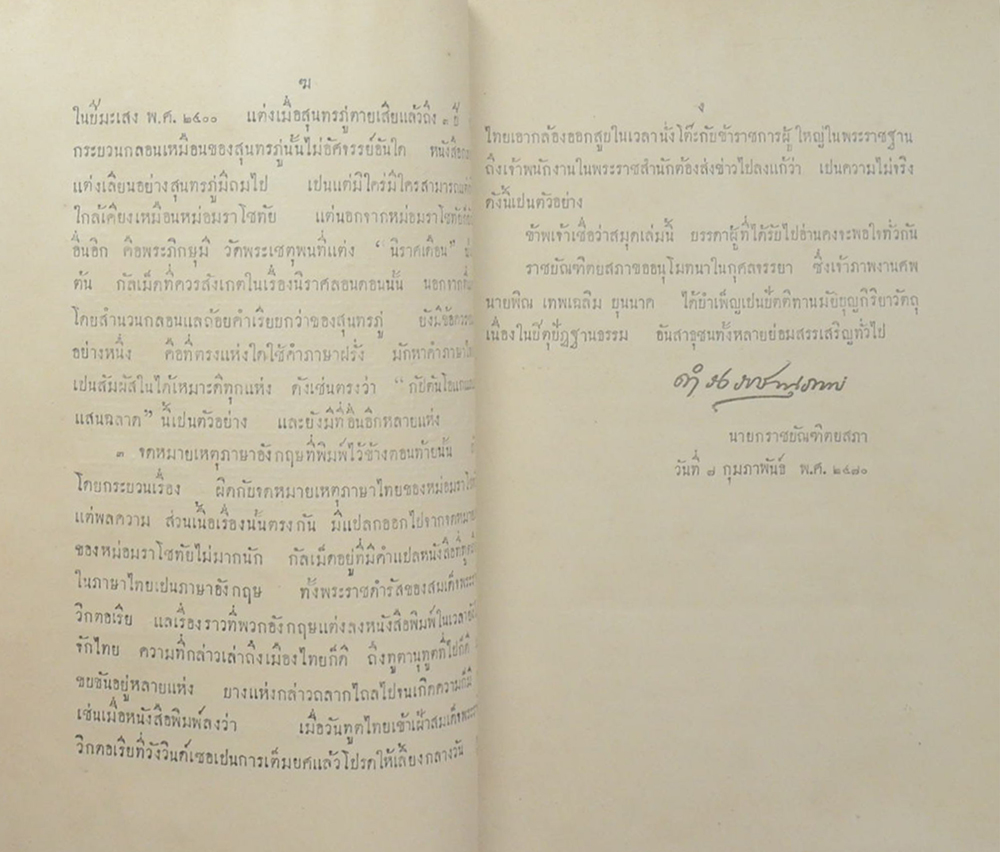 ฆ
ในปีมะเสง พ.ศ. ๒๔๐๐ แต่งเมื่อสุนทรภู่ตายเสียแล้วถึง ๓ ปี
กระบวนกลอนเหมือนของสุนทรภู่นั้นไม่อัศจรรย์อันใด
แต่งเลียนอย่างสุนทรภู่มีถมไป เปนแต่มิใคร่มีใครสามารถ
ใกล้เคียงเหมือนหม่อมราโชทัย แต่นอกจากหม่อมราโชทัย
อื่นอีก คือพระภิกษุมี วัดพระเชตุพนที่แต่ง “ นิราศเดือน ”
ต้น กัลเม็ดที่ควรสังเกตในเรื่องนิราศลอนดอนนั้น
โดยสำนวนกลอนแลถ้อยคำเรียบกว่าของสุนทรภู่ ยังมี
อย่างหนึ่ง คือที่ตรงแห่งใดใช้คำภาษาฝรั่ง มักหาคำภาษา
เปนสัมผัสในได้เหมาะดีทุกแห่ง ดังเช่นตรงว่า “กัปตันโอแกแลแกน
แสนฉลาด” นี้เปนตัวอย่าง และยังมีที่อื่นอีกหลายแห่ง
๓ จดหมายเหตุภาษาอังกฤษที่พิมพ์ไว้ข้างตอนท้ายนั้น
โดยกระบวนเรื่อง ผิดกับจดหมายเหตุภาษาไทยของหม่อมราโชทัย
แต่พลความ ส่วนเนื้อเรื่องนั้นตรงกัน มีแปลกออกไปจากจดหมาย
ของหม่อมราโชทัยไม่มากนัก กัลเม็ดอยู่ที่มีคำแปลหนังสือที่ทูต
ในภาษาไทยเปนภาษาอังกฤษ ทั้งพระราชดำรัสของสมเด็จพระ
วิกตอเรีย แลเรื่องราวที่พวกอังกฤษแต่งลงหนังสือพิมพ์ในเวลา
รักไทย ความที่กล่าวเล่าถึงเมืองไทยก็ดี ถึงทูตานุทูตที่ไปก็ดี
ขบขันอยู่หลายแห่ง บางแห่งกล่าวถลากไถลไปจนเกิดความก็มี
เช่นเมื่อหนังสือพิมพ์ลงว่า เมื่อวันทูตไทยเข้าเฝ้าสมเด็จพระ
วิกตอเรียที่วังวินด์เซอเปนการเต็มยศแล้วโปรดให้เลี้ยงกลางวัน
ง
ไทยเอากล้องออกสูบในเวลานั่งโต๊ะกับข้าราชการผู้ใหญ่ในพระราชฐาน
ถึงเจ้าพนักงานในพระราชสำนักต้องส่งข่าวไปลงแก้ว่า เปนความไม่จริง
ดังนี้เปนตัวอย่าง
ข้าพเจ้าเชื่อว่าสมุดเล่มนี้ บรรดาผู้ที่ได้รับไปอ่านคงจะพอใจทั่วกัน
ราชบัณฑิตยสภาขออนุโมทนาในกุศลจรรยา ซึ่งเจ้าภาพงานศพ
นายพิณ เทพเฉลิม บุนนาค ได้บำเพ็ญเปนปัตติทานมัยบุญกิริยาวัตถุ
เนื่องในปัตุปัฏฐานธรรม อันสาธุชนทั้งหลายย่อมสรรเสริญทั่วไป
ดำรงราชานุภาพ
นายกราชบัณฑิตยสภา
วันที่ ๗ กุมภาพันธ์ พ.ศ. ๒๔๗๐